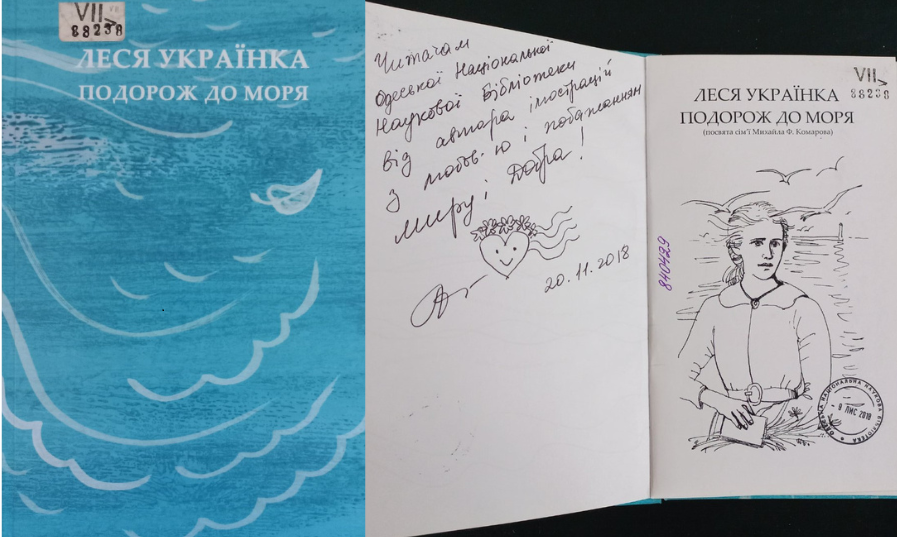 VII
88238
ЛЕСЯ УКРАЇНКА
ПОДОРОЖ ДО МОРЯ
Читачам
Одеської Національної
Наукової Бібліотеки
від автора ілюстрацій
з любов'ю і побажанням
миру і Добра!
20.11.2018
VII
88238
ЛЕСЯ УКРАЇНКА
ПОДОРОЖ ДО МОРЯ
(посвята сім'ї Михайла Ф. Комарова)
840429
ОДЕСЬКА НАЦІОНАЛЬНА НАУКОВА БІБЛІОТЕКА
9 ЛИС 2018